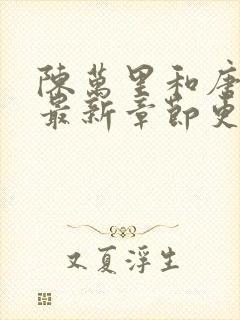 陳萬里和唐
最新章節更
又夏浮生